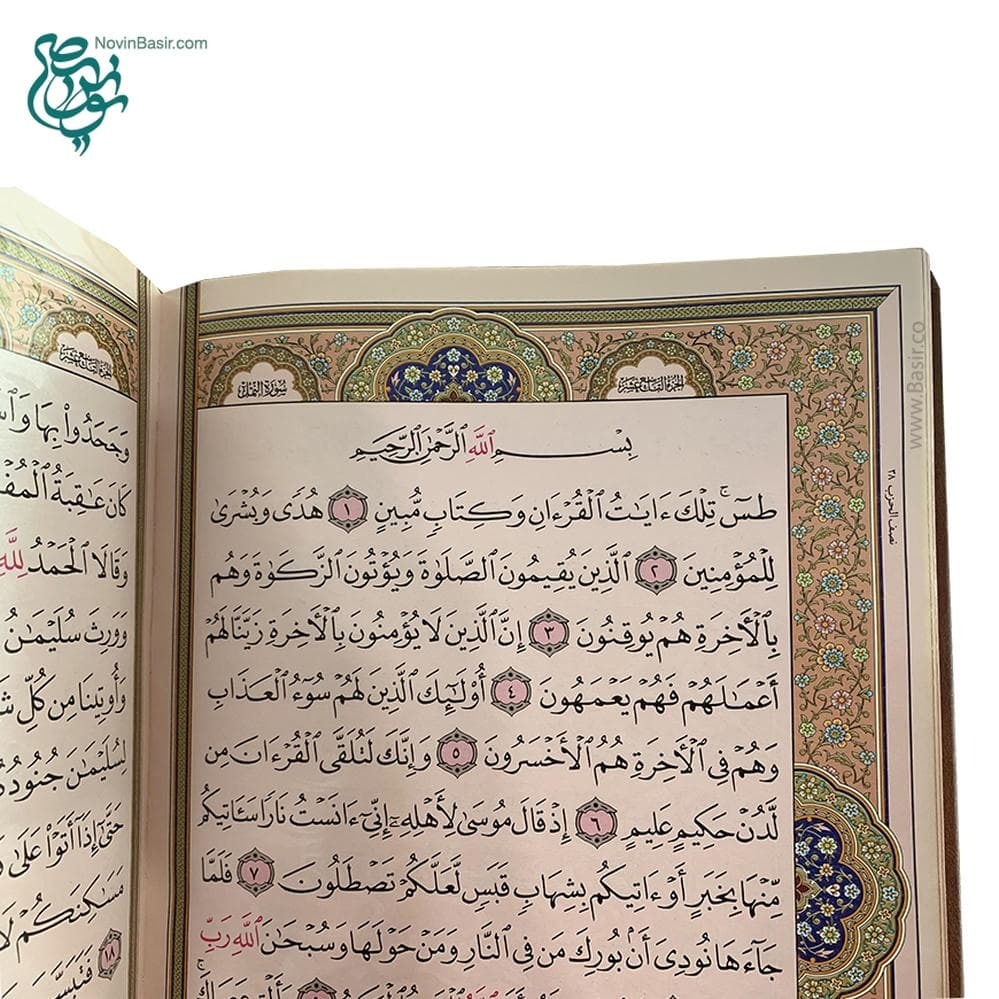 NovinBasir.com
سورة النمل
الجزء التاسع عشر
بِسْمِ ٱللَّهِ ٱلرَّحْمَٰنِ ٱلرَّحِيمِ
طسٓ ۚ تِلْكَ ءَايَٰتُ ٱلْقُرْءَانِ وَكِتَابٍ مُّبِينٍ ١ هُدًى وَبُشْرَىٰ
لِلْمُؤْمِنِينَ ٢ ٱلَّذِينَ يُقِيمُونَ ٱلصَّلَوٰةَ وَيُؤْتُونَ ٱلزَّكَوٰةَ وَهُم
بِٱلْأَخِرَةِ هُمْ يُوقِنُونَ ٣ إِنَّ ٱلَّذِينَ لَا يُؤْمِنُونَ بِٱلْأَخِرَةِ زَيَّنَّا لَهُمْ
أَعْمَٰلَهُمْ فَهُمْ يَعْمَهُونَ ٤ أُوْلَٰٓئِكَ ٱلَّذِينَ لَهُمْ سُوٓءُ ٱلْعَذَابِ
وَهُمْ فِي ٱلْأَخِرَةِ هُمُ ٱلْأَخْسَرُونَ ٥ وَإِنَّكَ لَتُلَقَّى ٱلْقُرْءَانَ مِن
لَّدُنْ حَكِيمٍ عَلِيمٍ ٦ إِذْ قَالَ مُوسَىٰ لِأَهْلِهِۦٓ إِنِّيٓ ءَانَسْتُ نَارًا سَـَٔاتِيكُم
مِّنْهَا بِخَبَرٍ أَوْ ءَاتِيكُم بِشِهَابٍ قَبَسٍ لَّعَلَّكُمْ تَصْطَلُونَ ٧ فَلَمَّا
جَآءَهَا نُودِيَ أَنۢ بُورِكَ مَن فِي ٱلنَّارِ وَمَنْ حَوْلَهَا وَسُبْحَٰنَ ٱللَّهِ رَبِّ
نصف الحزب ٣٨
www.Basir.co
الجزء التاسع عشر
وَجَحَدُواْ بِهَا
كَانَ عَٰقِبَةُ
وَقَالَا ٱلْحَمْدُ لِلَّهِ
وَوَرِثَ سُلَيْمَٰنُ
وَأُوتِينَا مِن كُلِّ
لِسُلَيْمَٰنَ جُنُودُهُ
حَتَّىٰٓ إِذَآ أَتَوْاْ عَلَىٰ
مَسَٰكِنَكُمْ لَا
١٨